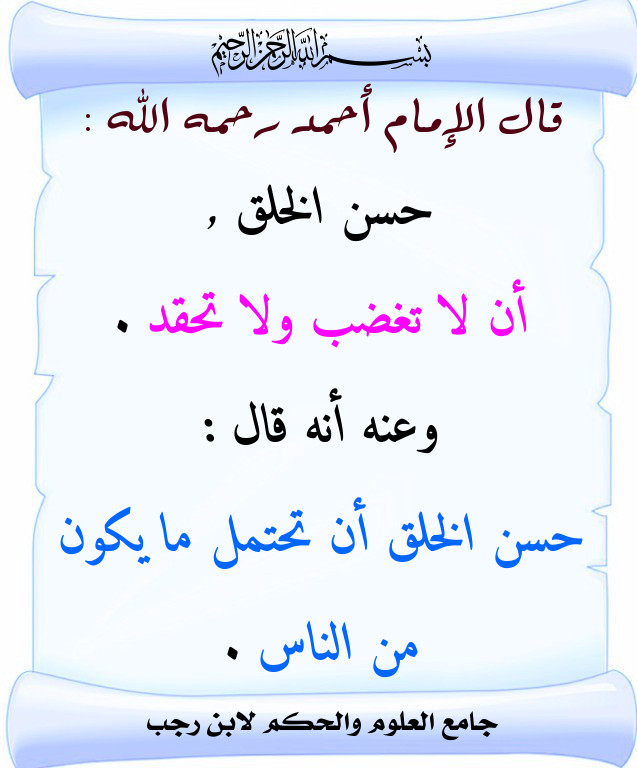 بسم الله الرحمن الرحيم
قال الإمام أحمد رحمه الله :
حسن الخلق ,
أن لا تغضب ولا تحقد .
وعنه أنه قال :
حسن الخلق أن تحتمل ما يكون
من الناس .
جامع العلوم والحكم لابن رجب